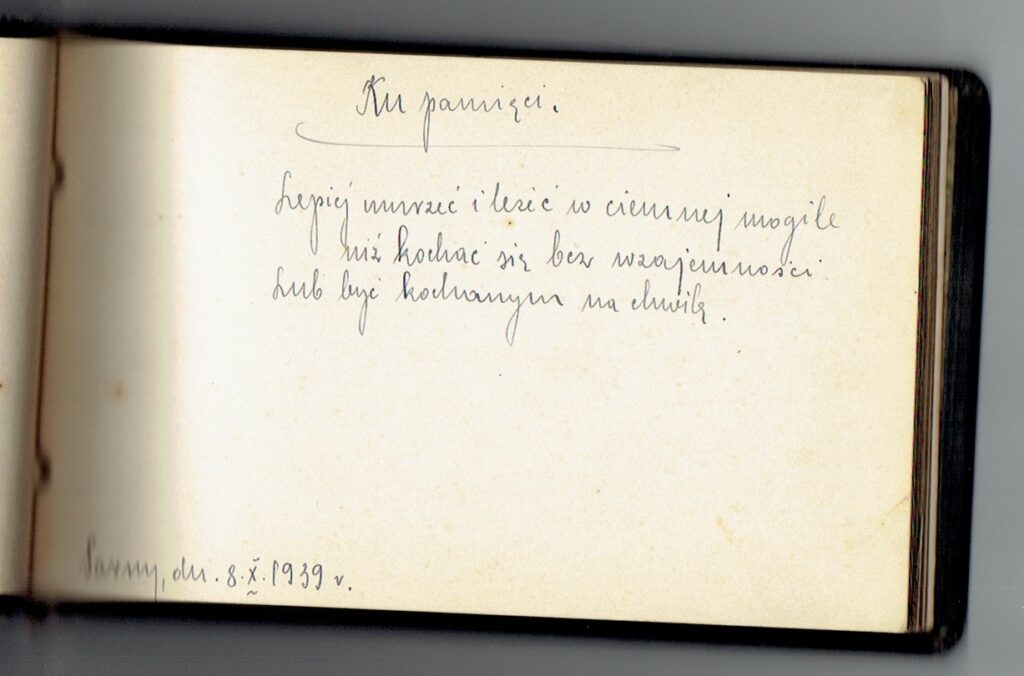 Ku pamięci.
Lepiej umrzeć i leżić w ciemnej mogile
niż kochać się bez wzajemności
Lub być kochanym na chwilę.
Sarny, dn. 8.X.1939 r.